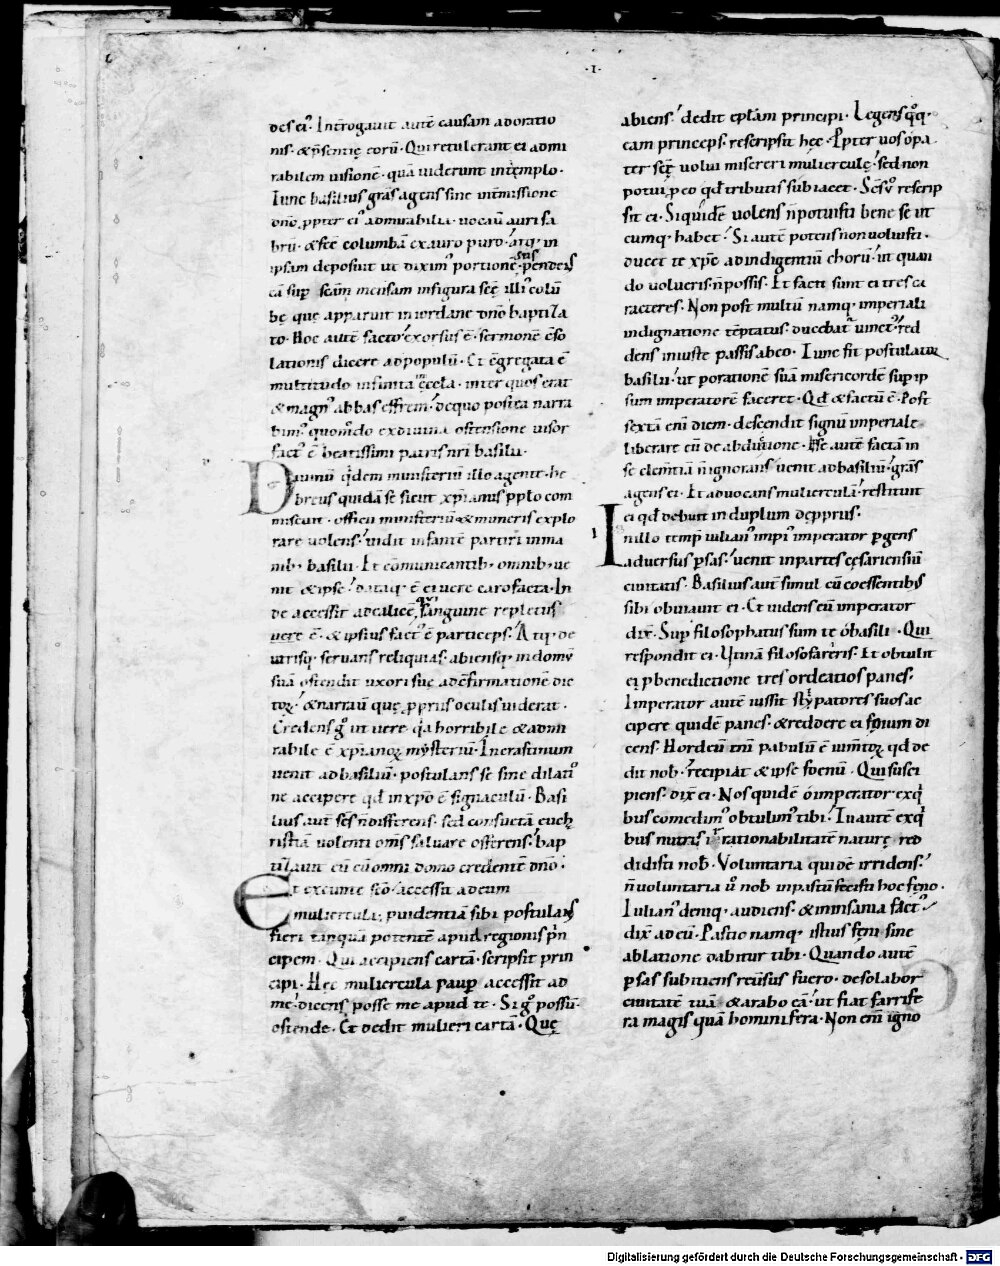 ·I·
des ei᾽. Int̄rogauit autē causam adoratio
nis· & p̄sentię eorū· Qui retulerunt ei admi
rabilem uisionē· quā uiderunt in tēmplo·
Tunc basilius gr̄as agens sine int̄missione
dn̄o ꝓpter ei᾽ admirabilia· uocauit aurifa
brū· & fec̄ columbā ex auro puro· atq; in
ipsam deposuit ut dixim᾽ portionē· sus pendens
eā sup̄ sc̄am mensam in figura sc̄ę illi᾽ colū
bę quę apparuit in iordane dn̄o baptiza
to· Hoc autē facto exorsus ē· sermonē c̄so
lationis dicere ad populū· Et c̄gregata ē
multitudo infinita in ęcc̄la· inter quos erat
& magn᾽ abbas effrem· de quo postea narra
bim᾽ quom̄do ex diuina ostensione uisor
fact᾽ ē beatissimi patris nr̄i basilii·
Diuinū q͛dem ministeriū illo agente· he
breus quidā se sicut xp̄ianus ꝑplo com
miscuit· officii ministeriū & muneris explo
rare uolens· uidit infantē partiri in ma
nib; basilii· Et cōmunicantib; omnib; ue
nit & ipse· dataq; ē ei uere caro facta· In
de accessit ad calicē, qui sanguine repletus
uere ē· & ipsius fact᾽ ē particeps· Atq; de
utrisq; seruans reliquias· abiensq; in domū
suā ostendit uxori suę ad c̄firmationē dic
toꝝ· & narrauit quę ꝓpriis oculis uiderat·
Credens g᷎ ut uere q͛a horribile & admi
rabile ē xp̄ianoꝝ mysteriū· In crastinum
uenit ad basiliū· postulans se sine dilati᾽
ne accipere qd̄ in xp̄o ē signaculū· Basi
lius aut̄ sc̄s n̄ differens· sed consuetā euch
ristiā uolenti om̄s saluare offerens· bap
tizauit eū cū omni domo credentē dn̄o·
Et exeunte sc̄o· accessit ad eum
muliercula, ꝓuidentiā sibi postulans
fieri tanquā potentē apud regionis p͛n
cipem· Qui accipiens cartā· scripsit prin
cipi· Hęc muliercula paup̄ accessit ad
me dicens posse me apud te· Si g᷎ possū·
ostende· Et dedit mulieri cartā· Quę
abiens· dedit ep̄tam principi· Legens q᷎q·
eam princeps· rescripsit hęc· Ꝓpter uos o pa
ter sc̄ę uolui misereri mulierculę· sed non
potui ꝓ eo qd̄ tributis subiacet· Sc̄s ū rescrip
sit ei· Si quidē uolens n̄ potuisti bene se ut
cumq; habet· Si autē potens non uoluisti·
ducet te xp̄c ad indigentiū chorū· ut quan
do uolueris· n̄ possis· Et facti sunt ei tres ca
racteres· Non post multū namq; imperiali
indignatione tēptatus· ducebat᷑ uinct᾽ red
dens iniuste passis ab eo· Tunc fit postulatio
basilii· ut ꝑ orationē suā misericordē sup ip
sum imperatorē faceret· Qd̄ & factū ē· Post
sextā eni diem· descendit signū imperiale
liberare eū de abductione· Hic autē factā in
se clem̄tiā n̄ ignorans uenit ad basiliū· gr̄as
agens ei· Et aduocans mulierculā· restituit
ei qd̄ debuit in duplum de ꝓpriis·
In illo temp̄ iulian᾽ impi᾽ imperator ꝑgens
aduersus ꝑsas· uenit in partes cęsariensiū
ciuitatis· Basilius aut̄ simul cū coessentib;
sibi obuiauit ei· Et uidens eū imperator
dix̄· Sup̄ filosophatus sum te ó basili· Qui
respondit ei· Utinā filosofareris· Et obtulit
ei ꝓ benedictione tres ordeatios panes·
Imperator autē iussit stypatores suos ac
cipere quidē panes· & reddere ei fęnum di
cens· Hordeū eni pabulū ē ium̄toꝝ qd̄ de
dit nob· recipiat & ipse foenū· Qui susci
piens· dix̄ ei· Nos quidē ó imperator ex q͛
bus comedim᾽ obtulim᾽ tibi· Tu autē ex q͛
bus nutris irrationabilitatē naturę red
didisti nob̄· Voluntaria quidē irridens·
n̄ uoluntaria ū nob in pastū fecisti hoc fęno·
Iulian᾽ deniq; audiens· & in insania fact᾽
dix̄ ad eū· Pastio namq; istius fęni sine
ablatione dabitur tibi· Quando autē
ꝑsas subiciens reūsus fuero· desolabor
ciuitatē tuā· & arabo eā· ut fiat farrife
ra magis quā hominifera· Non eni igno
Digitalisierung gefördert durch die Deutsche Forschungsgemeinschaft - DFG